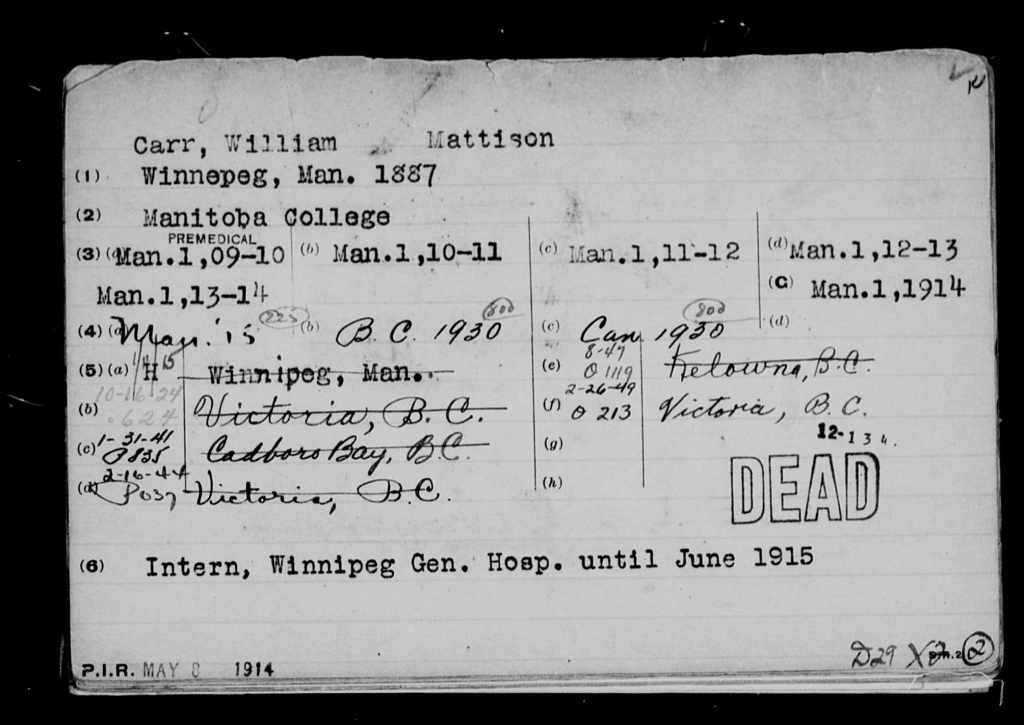 Carr, William Mattison
(1) Winnepeg, Man. 1887
(2) Manitoba College
PREMEDICAL
(3) (a) Man.1,09-10 (b) Man.1,10-11 (c) Man.1,11-12 (d) Man.1,12-13
Man.1,13-14 (G) Man.1,1914
(4) (a) Man. '15 225 (b) B.C. 1930 800 (c) Can 1930 800 (d)
(5) (a) H 15 Winnipeg, Man. (e) 8-47 O 1119 Kelowna, B.C.
10-16-24
(b) 624 Victoria, B.C. (f) 2-26-49 O 213 Victoria, B.C.
12-134.
(c) 1-31-41 P835 Cadboro Bay, B.C. (g)
(d) 2-16-44 P037 Victoria, B.C. (h)
DEAD
(6) Intern, Winnipeg Gen. Hosp. until June 1915
D29 X 2
P.I.R. MAY 8 1914